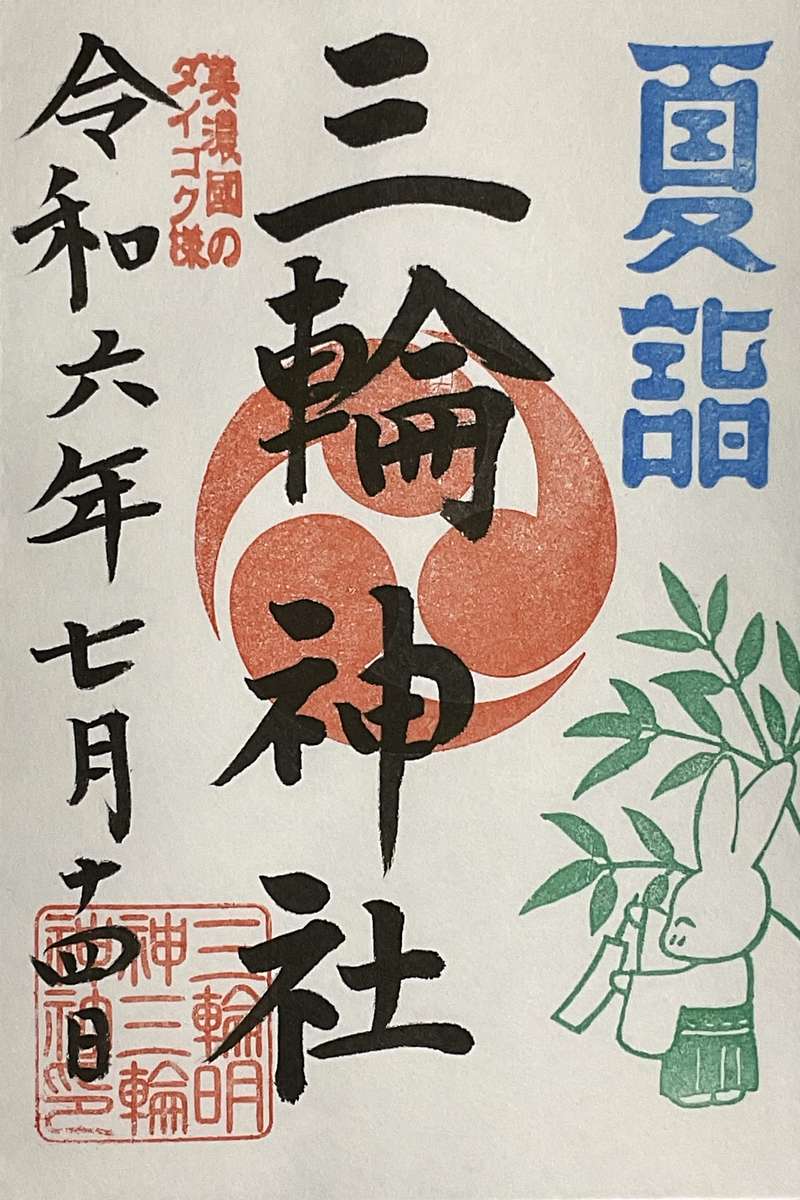 夏詣
三輪神社
美濃國の
ダイコク様
令和六年七月十四日
三輪明
神三輪
神社印